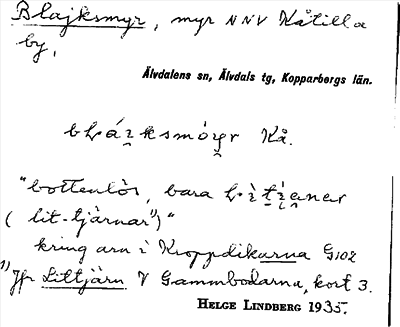 Blajksmyr, myr NNV Kåtilla
by,
Älvdalens sn, Älvdals tg, Kopparbergs län.
Kå.
"bottenlös, bara
(lit-tjärnar¹)"
kring arn i Kroppdikarna G102
¹) Jfr Littjärn V Gammbodarna, kort 3.
HELGE LINDBERG 1935.